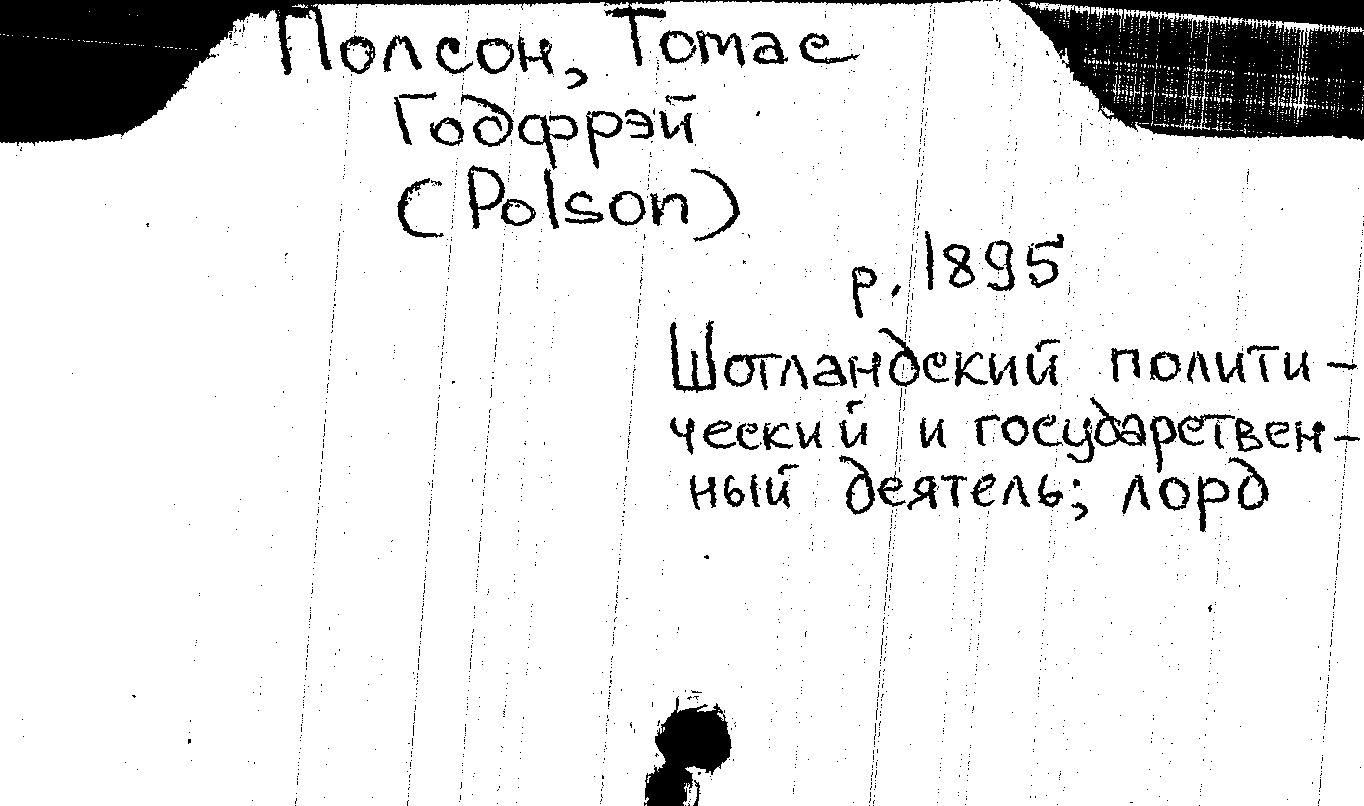 Полсон, Томас
Годфрэй
(Polson)
р. 1895
Шотландский полити-
ческий и государствен-
ный деятель; лорд